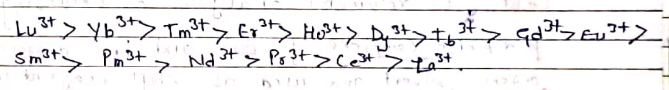 Lu³⁺ > Yb³⁺ > Tm³⁺ > Er³⁺ > Ho³⁺ > Dy³⁺ > Tb³⁺ > Gd³⁺ > Eu³⁺ >
Sm³⁺ > Pm³⁺ > Nd³⁺ > Pr³⁺ > Ce³⁺ > La³⁺.